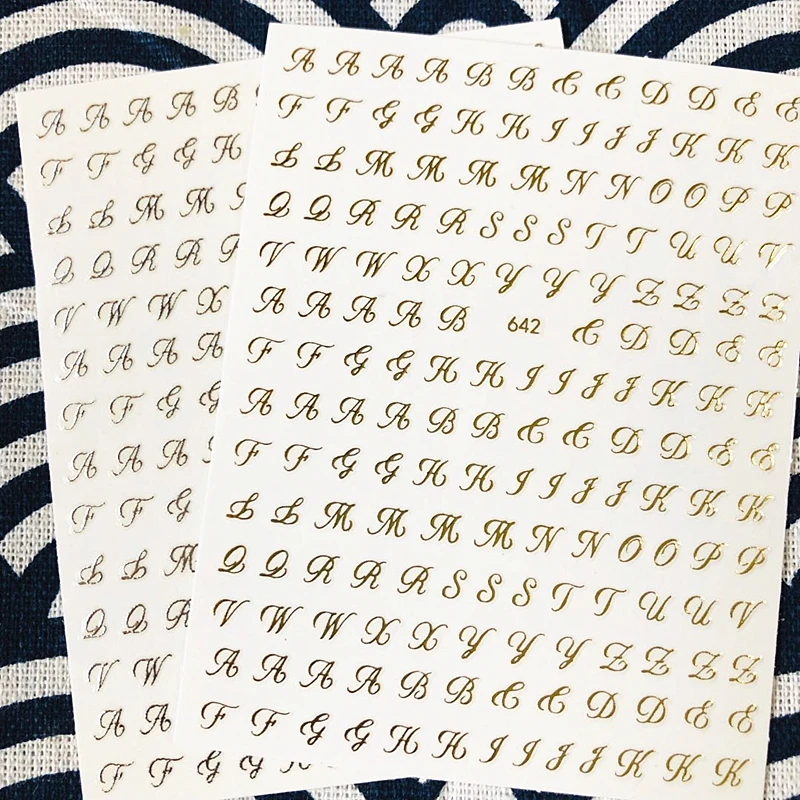 A A A A B
F F G G H
L L M M
Q Q R R
V W W X
A A A A
F F G G
A A A
F F G
L L M
Q Q R
V W
A A
F F G G
A A A A B B C C D D E E
F F G G H H I I J J K K K
L L M M M M N N O O P P
Q Q R R R S S S T T U U V
V W W X X Y Y Y Z Z Z Z
A A A A B 642 C D D E E
F F G G H H I I J J K K K
A A A A B B C C D D E E
F F G G H H I I J J K K K
L L M M M M N N O O P P
Q Q R R R S S S T T U U V
V W W X X Y Y Y Z Z Z Z
A A A A B B C C D D E E
F F G G H H I I J J K K K